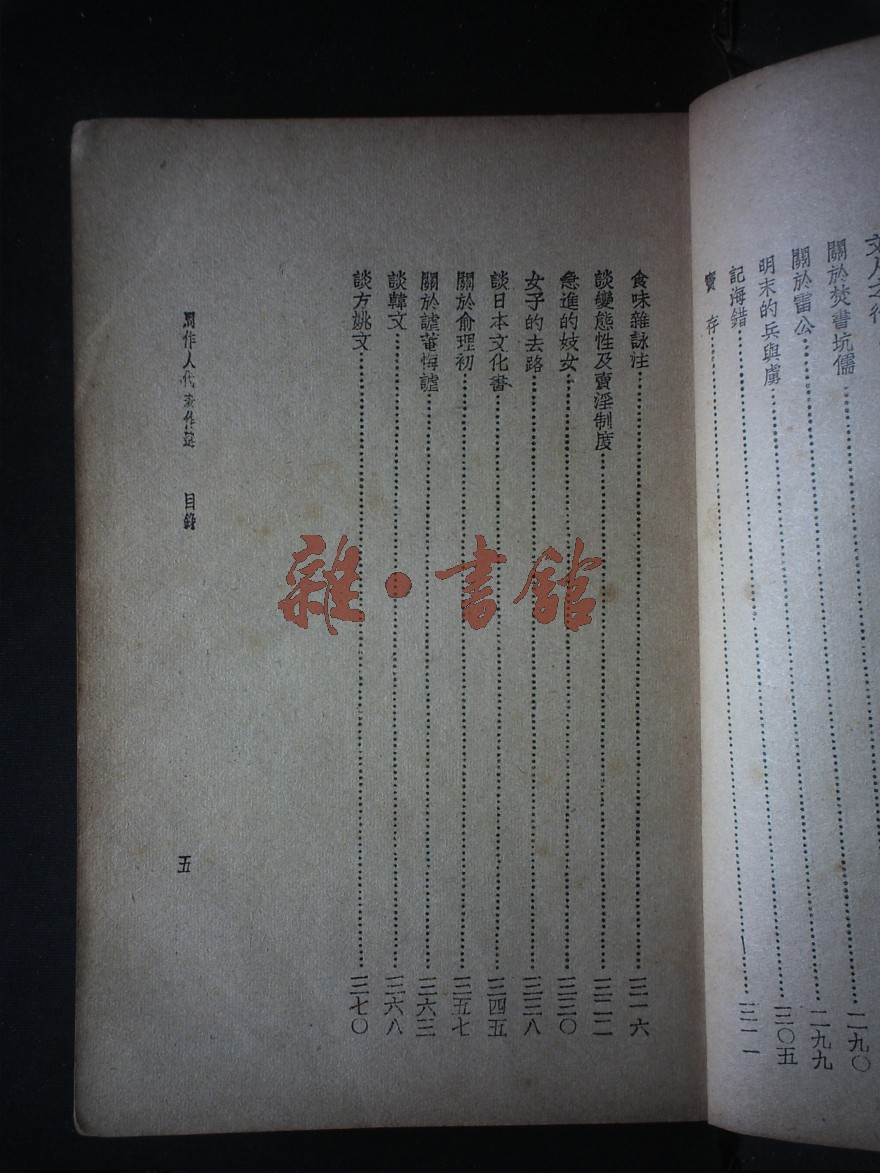 關於焚書坑儒……二九〇
關於雷公……二九九
明末的兵與虜……三〇五
記海錯……三一一
賣存
食味雜詠注……三一六
談變態性及賣淫制度……三二二
急進的妓女……三三〇
女子的去路……三三八
談日本文化書……三四五
關於俞理初……三五七
關於謔菴悔謔……三六三
談韓文……三六八
談方姚文……三七〇
周作人代表作選 目錄
五
雜·書館